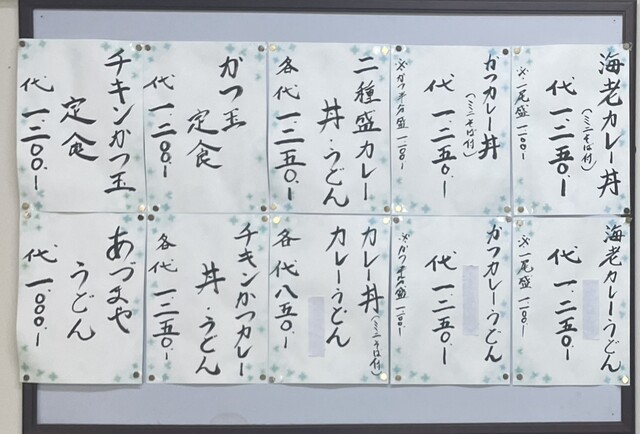 海老カレー丼
(ミニそば付)
代 一、二五〇、ー
※一尾盛 一一〇〇ー
かつカレー丼
(ミニそば付)
代 一、二五〇、ー
※かつ半分盛 一一〇〇ー
二種盛カレー
丼・うどん
各代 一、二五〇、ー
かつ玉
定食
代 一、二〇〇、ー
チキンかつ玉
定食
代 一、二〇〇、ー
海老カレーうどん
代 一、二五〇、ー
※一尾盛 一一〇〇ー
かつカレーうどん
代 一、二五〇、ー
※かつ半分盛 一一〇〇ー
カレー丼(ミニそば付)
カレーうどん
各代 八五〇、ー
チキンかつカレー
丼・うどん
各代 一、二五〇、ー
あづまや
うどん
代 一、〇〇〇、ー